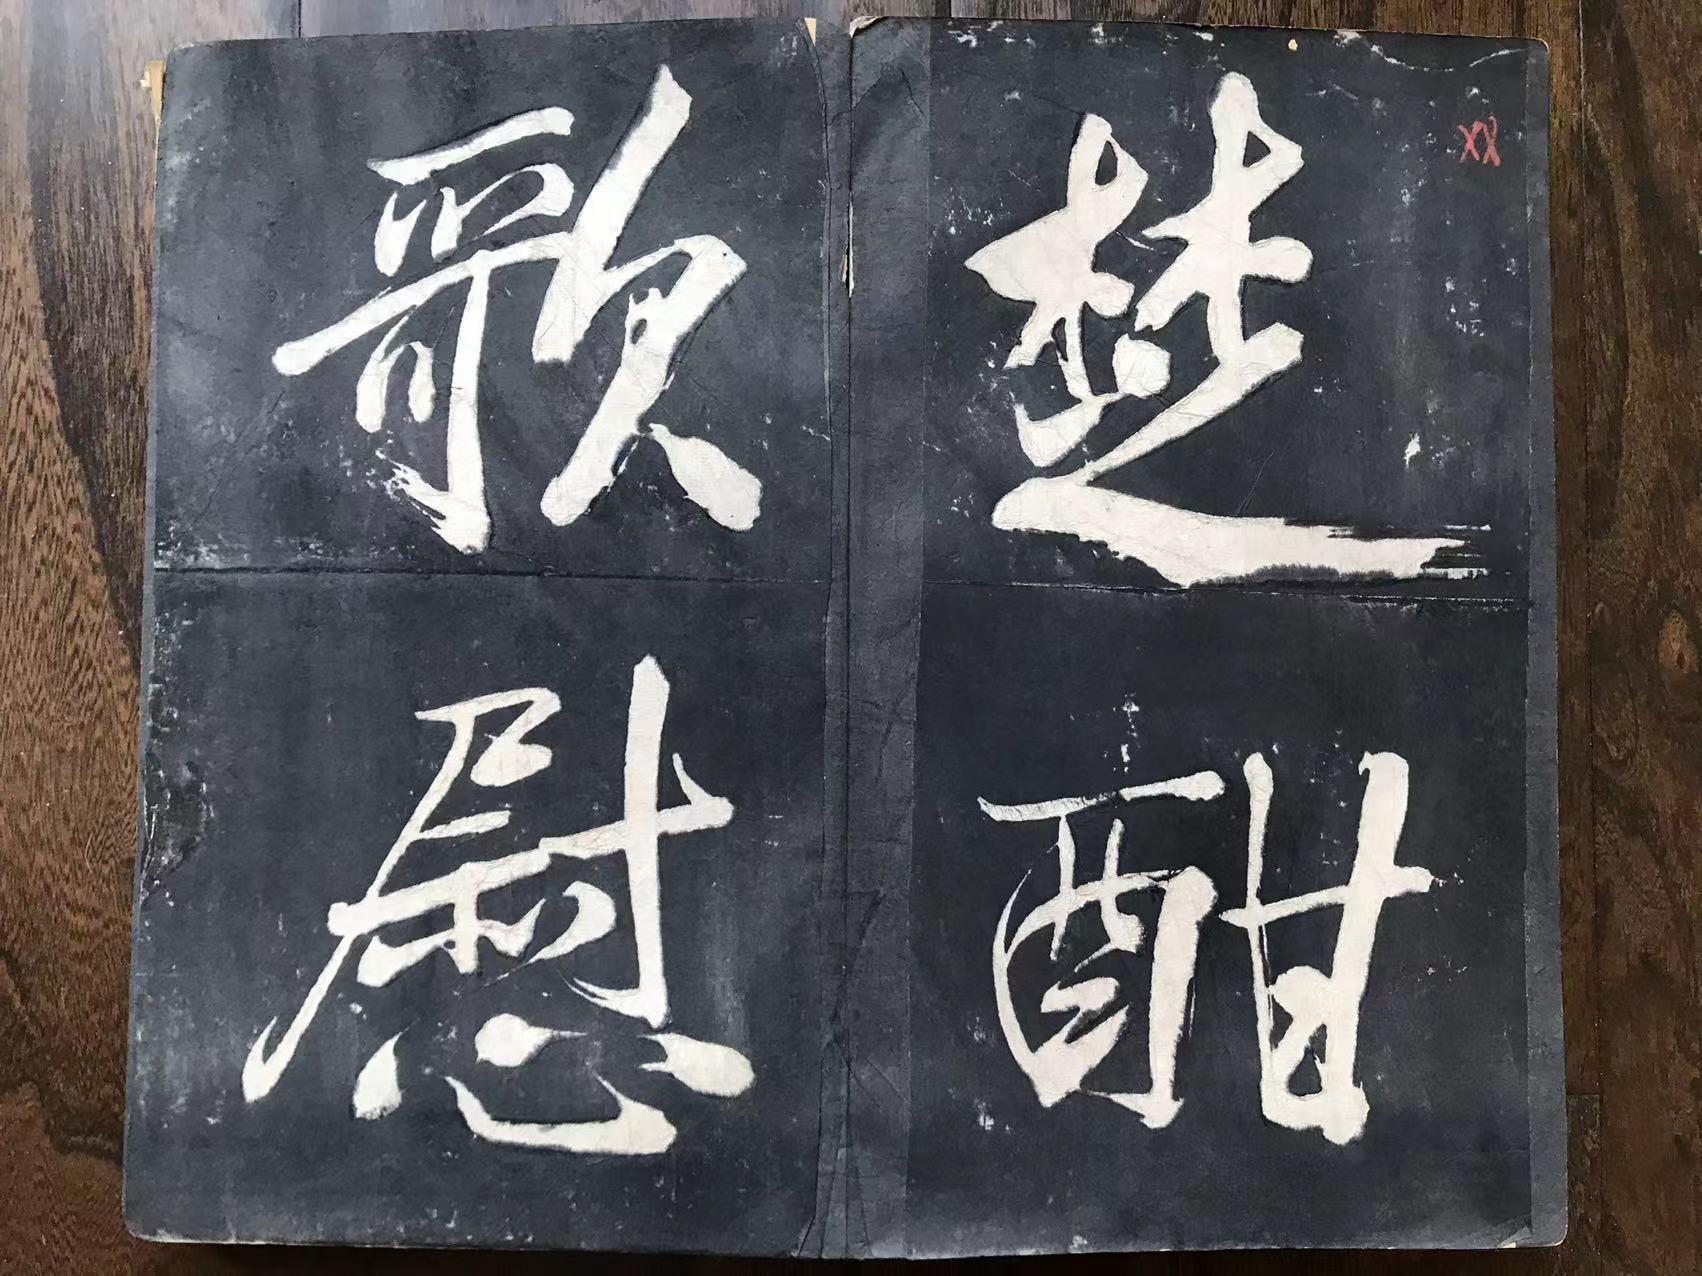 楚酣
歌慰